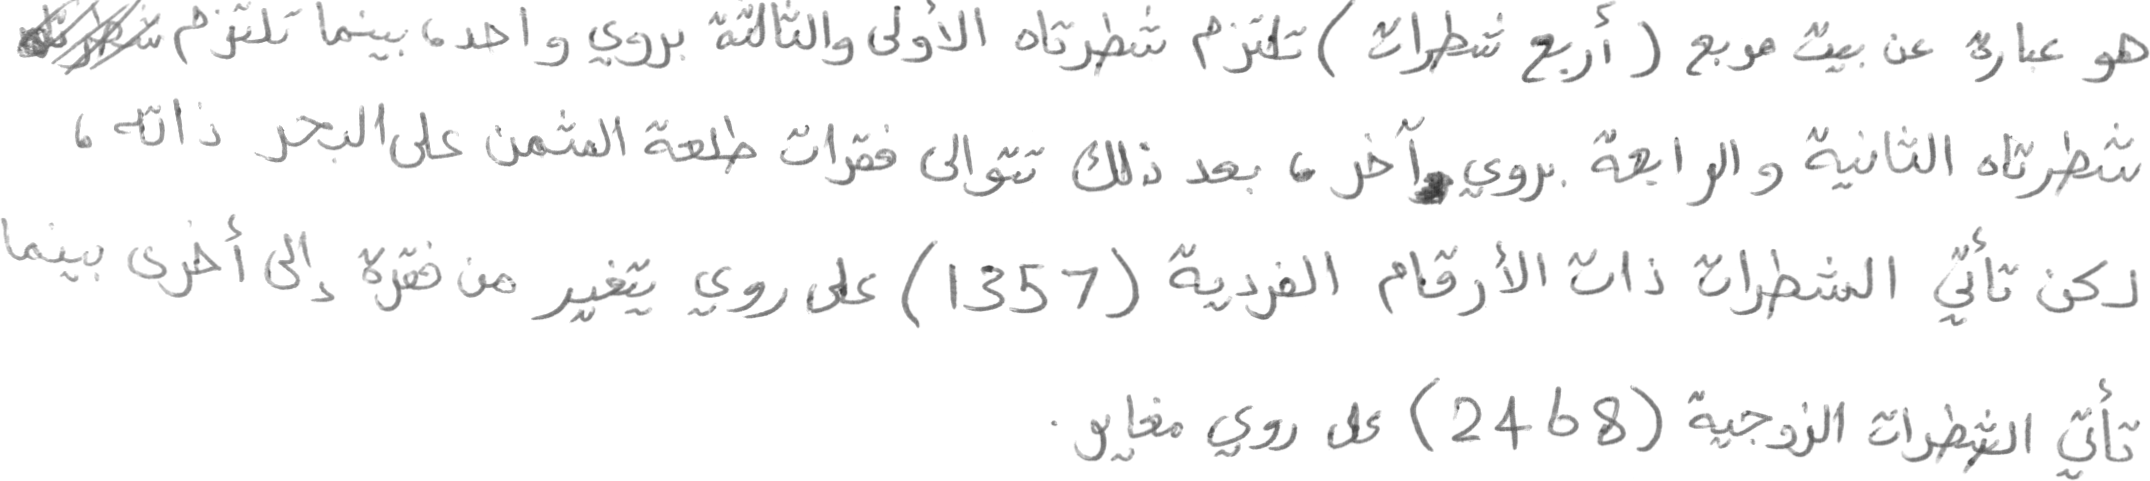 هو عبارة عن بيت مربع (أربع شطرات) تلتزم شطرتاه الأولى والثالثة بروي واحد، بينما تلتزم
شطرتاه الثانية والرابعة بروي آخر، بعد ذلك تتوالى فقرات طلعة المثمن على البحر ذاته،
لكن تأتي الشطرات ذات الأرقام الفردية (1357) على روي يتغير من فقرة إلى أخرى بينما
تأتي الشطرات الزوجية (2468) على روي مغاير.